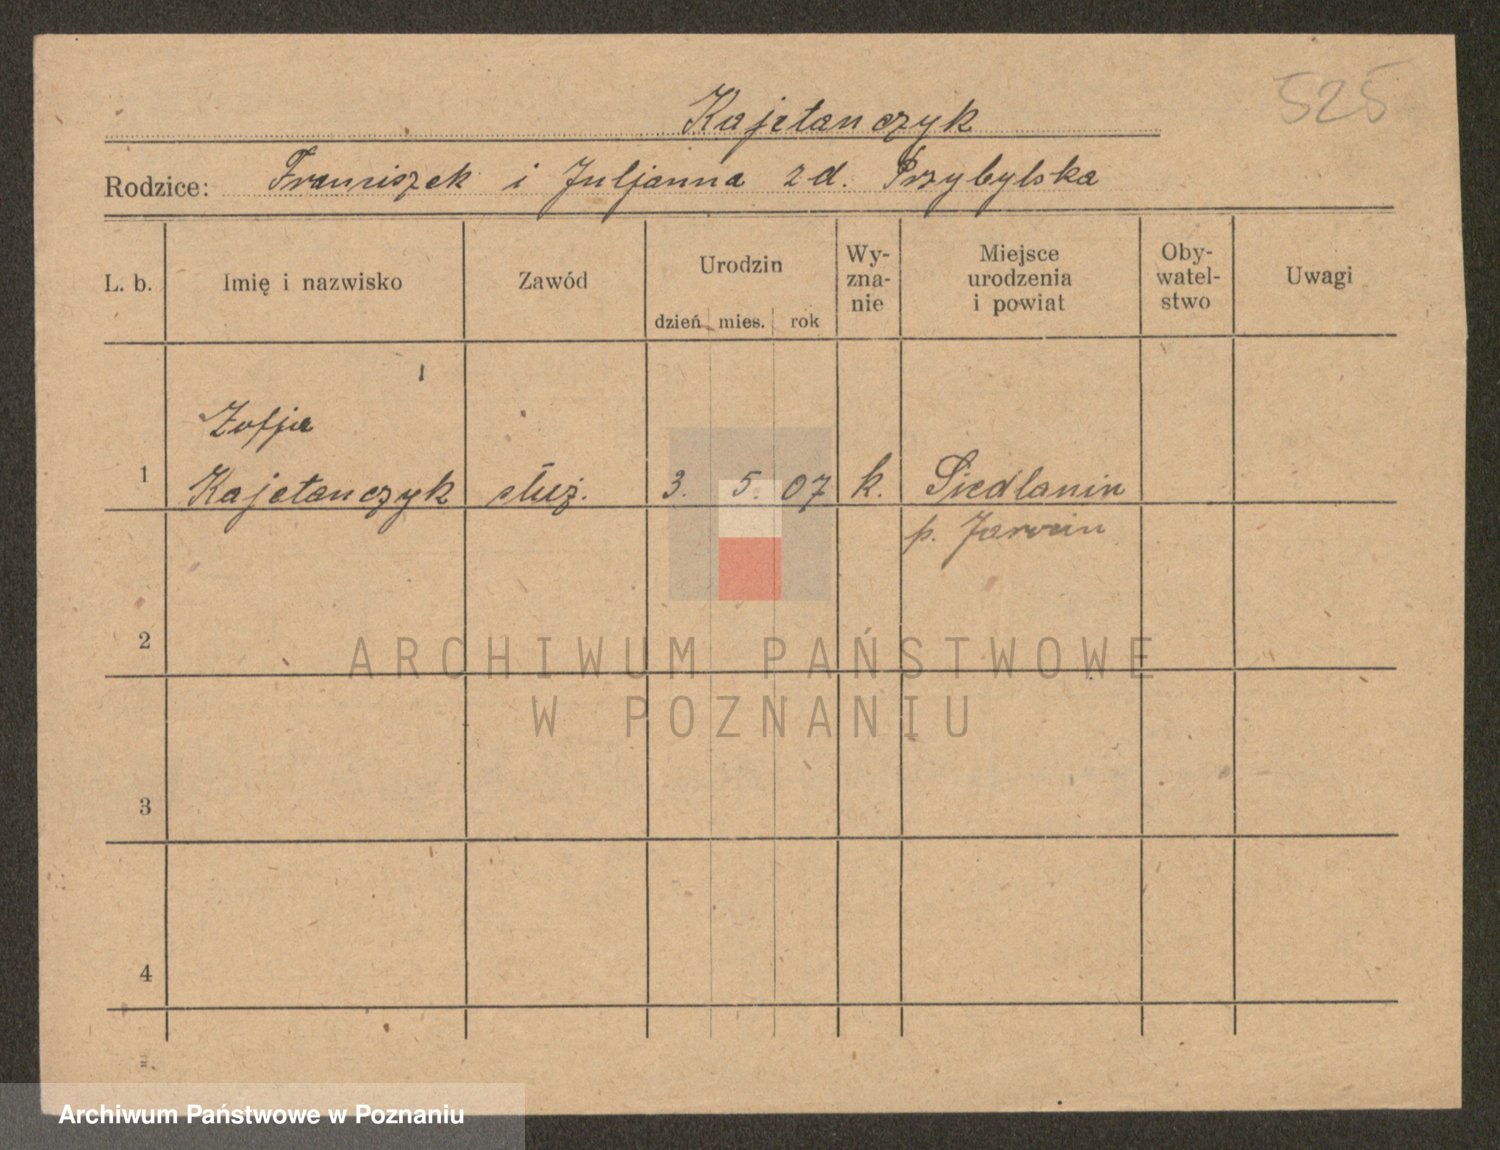 525
Kajetanczyk
Rodzice: Franciszek i Juljanna zd. Przybylska
L. b. Imię i nazwisko Zawód Urodzin dzień mies. rok Wy-
zna-
nie Miejsce
urodzenia
i powiat Oby-
watel-
stwo Uwagi
Zofja
1 Kajetanczyk służ. 3. 5. 07 k. Siedlanin
p. Jarocin
2
ARCHIWUM PAŃSTWOWE
W POZNANIU
3
4
Archiwum Państwowe w Poznaniu